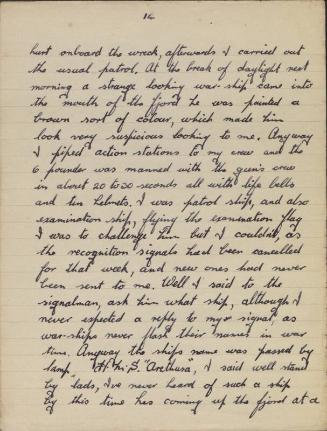 14
hurt onboard the wreck, afterwards I carried out
the usual patrol. At the break of daylight next
morning a strange looking war-ship came into
the mouth of the fjord he was painted a
brown sort of colour, which made him
look very suspicious looking to me. Anyway
I piped action stations to my crew and the
6 pounder was manned with the guns crew
in about 20 to 30 seconds all with life belts
and tin helmets. I was patrol ship, and also
examination ship, flying the examnation flag
I was to challenge him but I couldnt, as
the recognition signals had been cancelled
for that week, and new ones had never
been sent to me. Well I said to the
signalman, ask him what ship, although I
never expected a reply to my signal, as
war-ships never flash their names in war
time. Anyway the ships name was passed by
lamp "H.M.S. Arethusa", I said well stand
by lads, I've never heard of such a ship
by this time has coming up the fjord at a